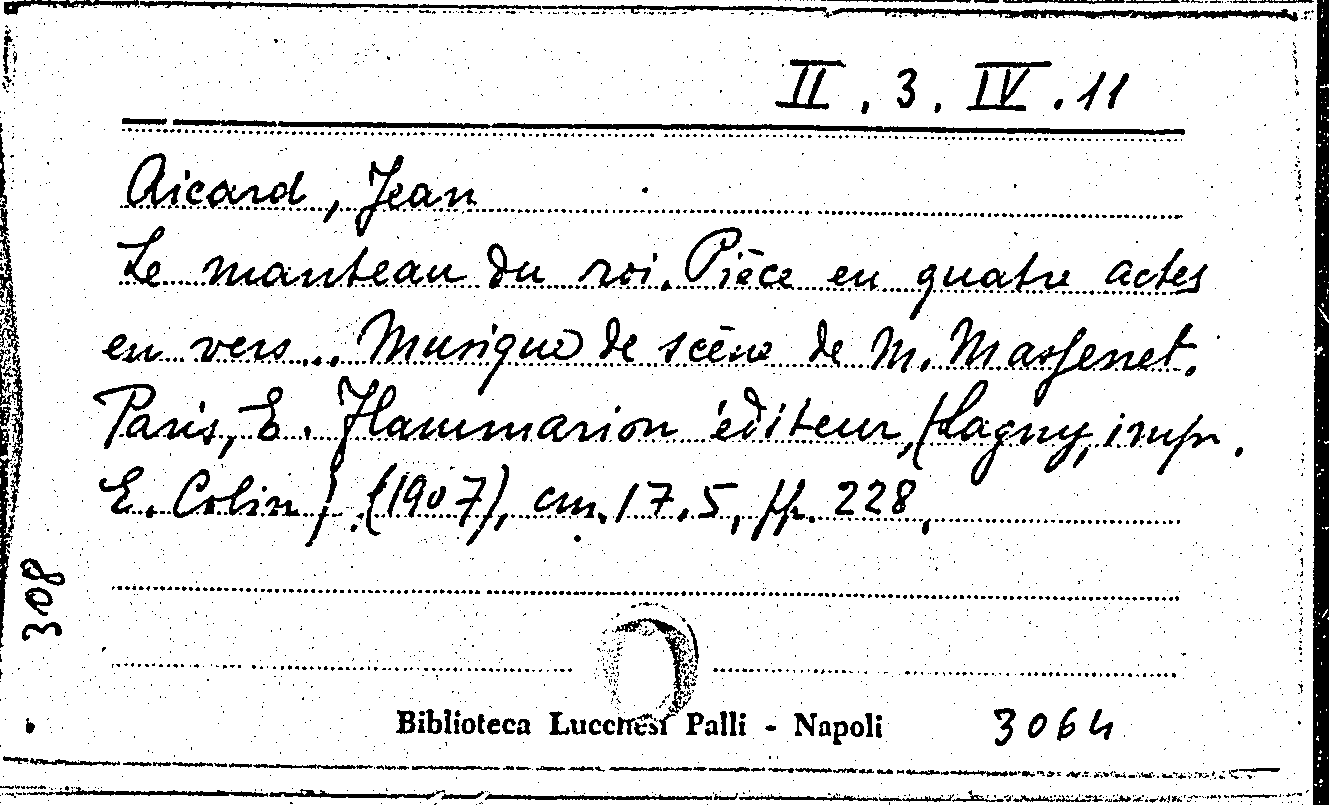 II . 3 . IV . 11
Aicard, Jean
Le manteau du roi. Pièce en quatre actes
en vers... Musique de scène de M. Massenet.
Paris, E. Flammarion éditeur, (Lagny, impr.
E. Colin) (1907), cm. 17.5, pp. 228.
308
Biblioteca Lucchesi Palli - Napoli 3064